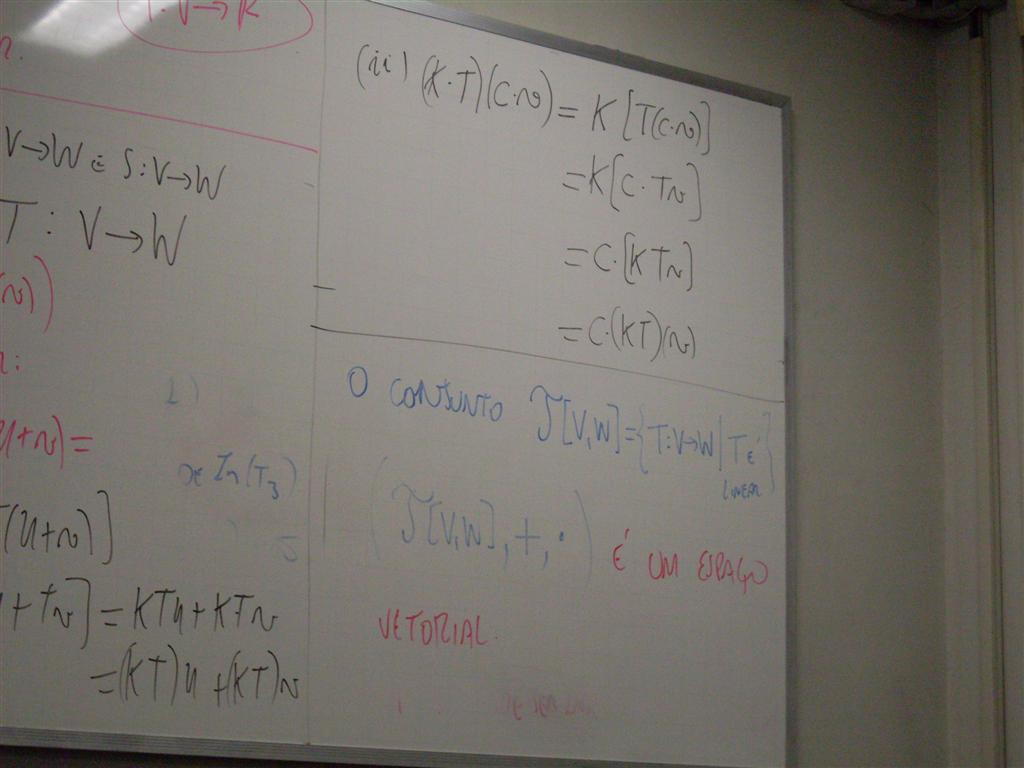 T: V→K
n.
V→W E S:V→W
T: V→W
(v)
n:
u+v)=
T(u+v)]
u+Tv]=KTu+KTv
=(KT)u+(KT)v
1)
x∈Im(T3)
(ii) (K·T)(c·v)=K[T(c·v)]
=K[c·Tv]
=c·[KTv]
=c·(KT)(v)
O CONJUNTO 𝒯[V,W]={T:V→W|T É LINEAR}
(𝒯[V,W],+,·) É UM ESPAÇO
VETORIAL.